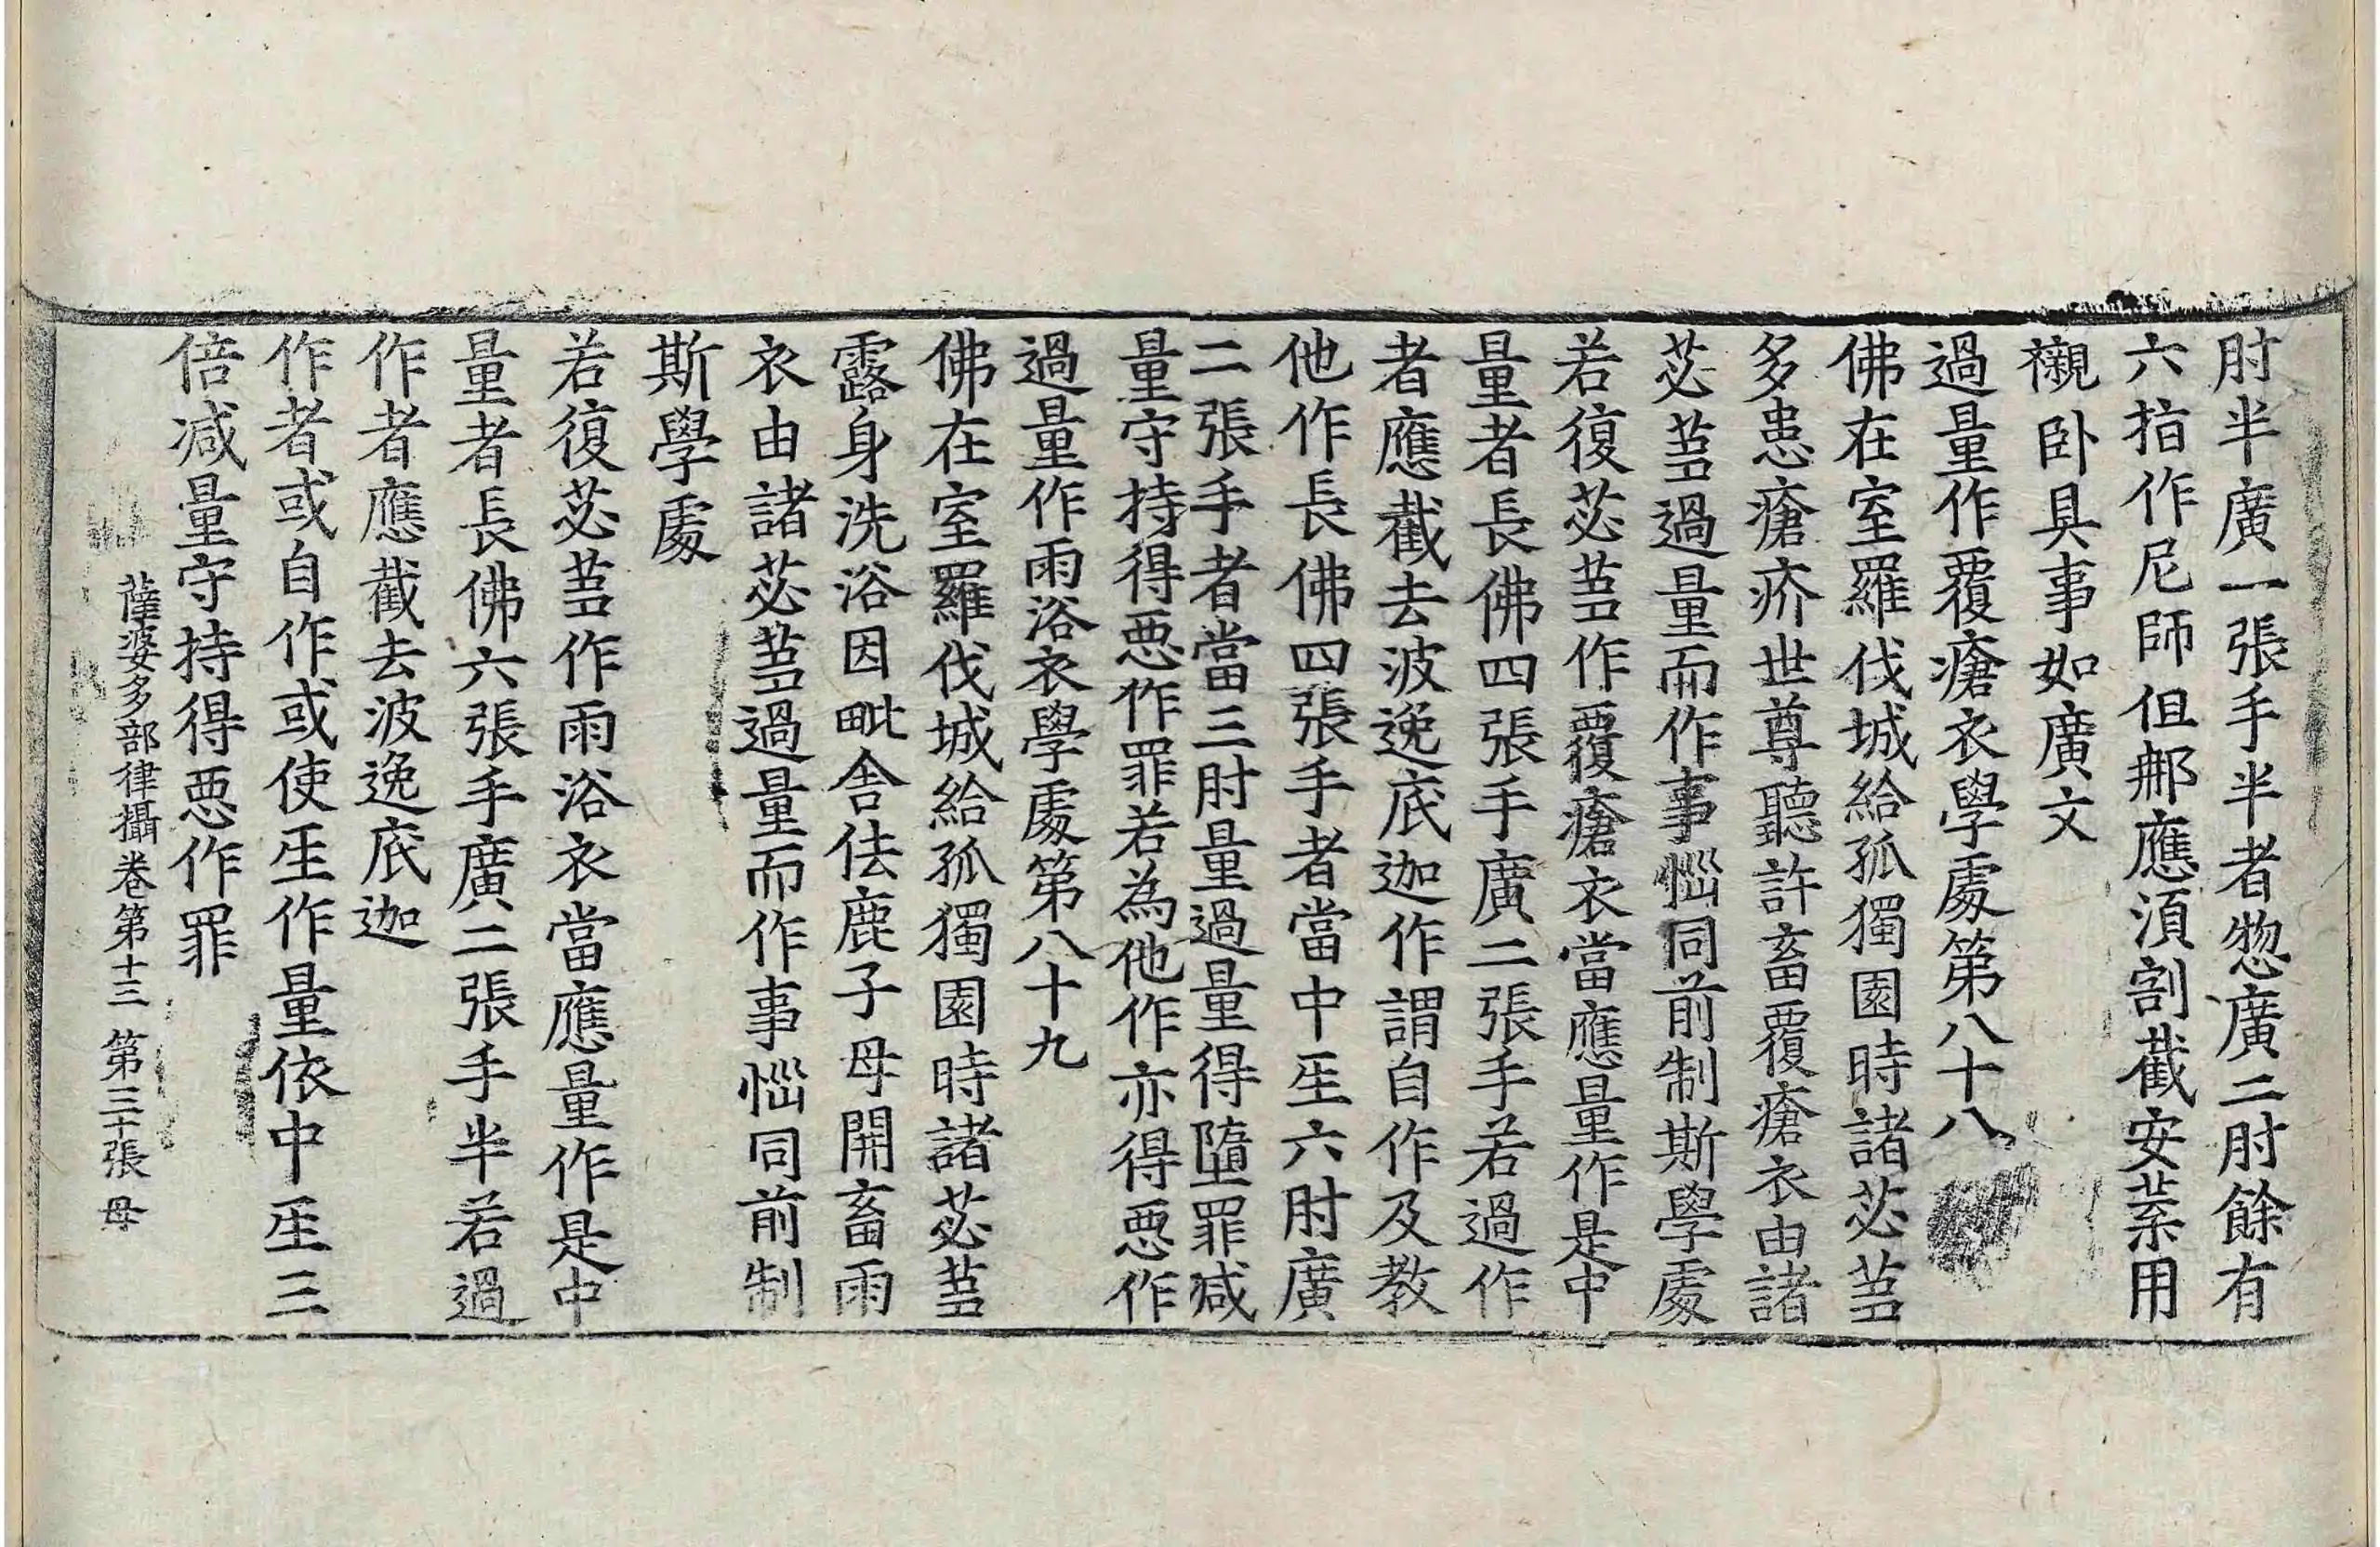 肘半廣一張手半者惣廣二肘餘有
六指作尼師但那應湏割截安葉用
襯卧具事如廣文
過量作覆瘡衣學處第八十八
佛在室羅伐城給孤獨園時諸苾芻
多患瘡疥世尊聽許畜覆瘡衣由諸
苾芻過量而作事惱同前制斯學處
若復苾芻作覆瘡衣當應量作是中
量者長佛四張手廣二張手若過作
者應截去波逸底迦作謂自作及教
他作長佛四張手者當中人六肘廣
二張手者當三肘量過量得墮罪減
量守持得惡作罪若為他作亦得惡作
過量作雨浴衣學處第八十九
佛在室羅伐城給孤獨園時諸苾芻
露身洗浴因毗舍佉鹿子母開畜雨
衣由諸苾芻過量而作事惱同前制
斯學處
若復苾芻作雨浴衣當應量作是中
量者長佛六張手廣二張手半若過
作者應截去波逸底迦
作者或自作或使人作量依中人三
倍減量守持得惡作罪
薩婆多部律攝卷第十三 第三十張 母